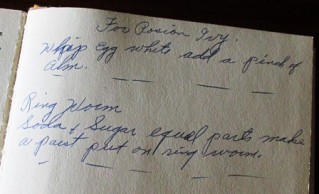 For Posion Ivy.
Whip egg white add a pinch of
alm.
Ring Worm
Soda & Sugar equal parts make
a past put on ring worm.